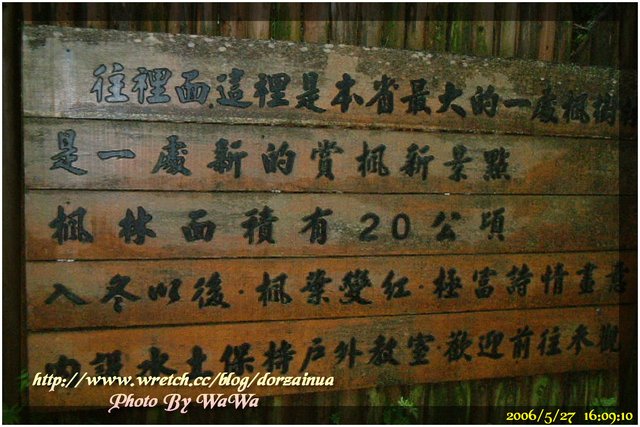 往裡面這裡是本省最大的一處楓樹林
是一處新的賞楓新景點
楓林面積有20公頃
入冬以後·楓葉變紅·極富詩情畫意
內設水土保持戶外教室歡迎前往參觀
http://www.wretch.cc/blog/dorzainua
Photo By WaWa
2006/5/27 16:09:10